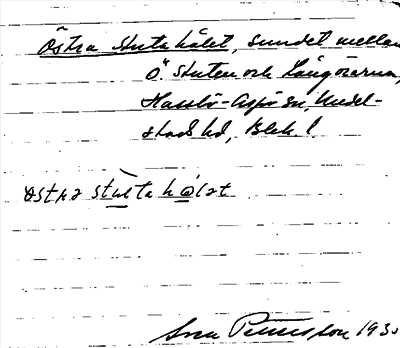 Östra Stutahålet, sundet mellan
Ö. Stuten och Långörarna,
Hasslö-Aspö sn, Medel-
stads hd, Blek. l.
östra stutahålet
Sven Petersson 193